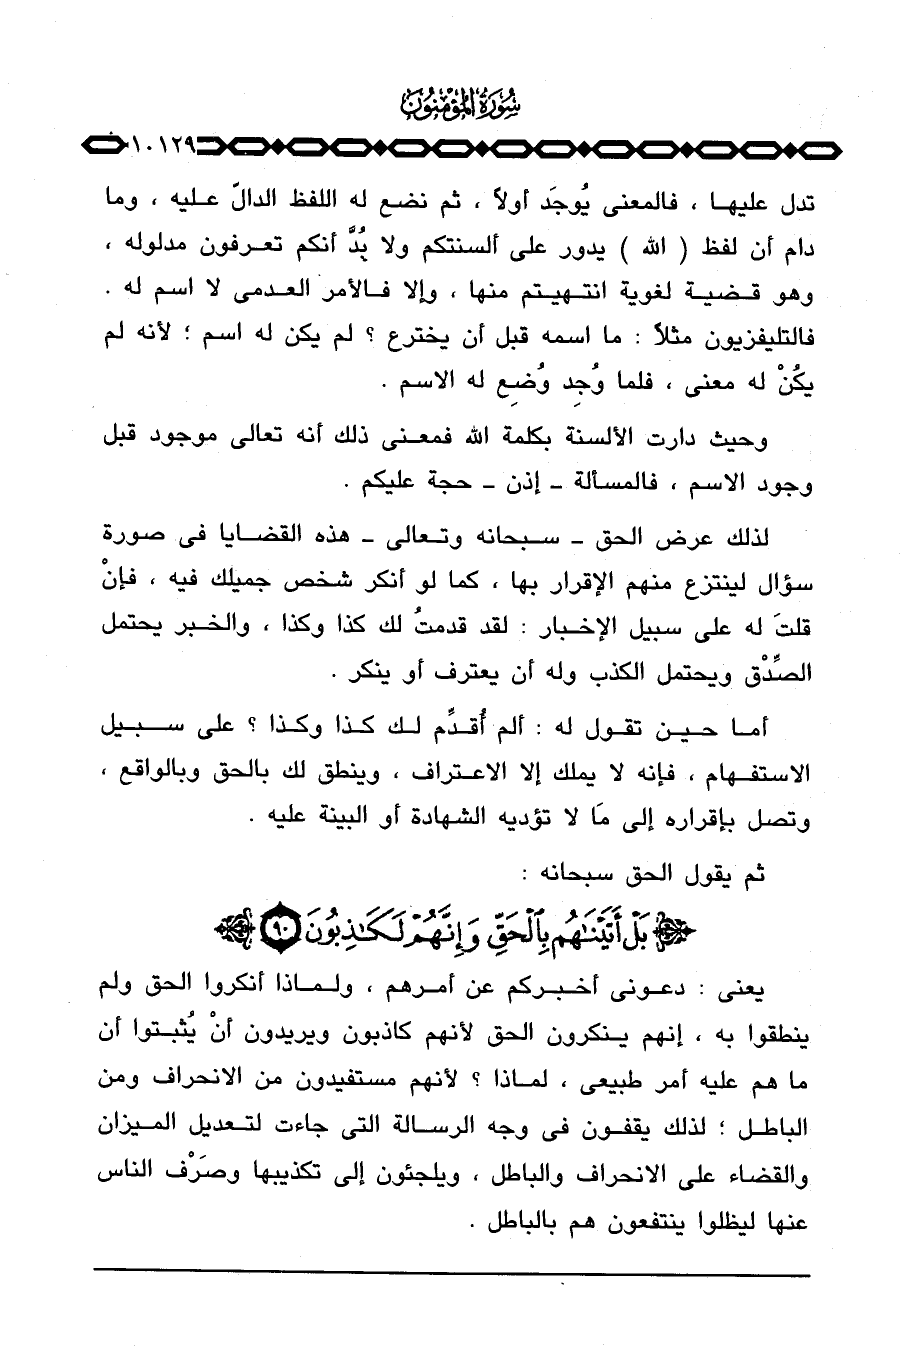 سُورَةُ المُؤْمِنُونَ
١٠١٢٩
تدل عليها ، فالمعنى يُوجَد أولاً ، ثم نضع له اللفظ الدالّ عليه ، وما
دام أن لفظ ( الله ) يدور على ألسنتكم ولا بُدَّ أنكم تعرفون مدلوله ،
وهو قضية لغوية انتهيتم منها ، وإلا فالأمر العدمى لا اسم له .
فالتليفزيون مثلاً : ما اسمه قبل أن يخترع ؟ لم يكن له اسم ؛ لأنه لم
يكُنْ له معنى ، فلما وُجِد وُضِع له الاسم .
وحيث دارت الألسنة بكلمة الله فمعنى ذلك أنه تعالى موجود قبل
وجود الاسم ، فالمسألة - إذن - حجة عليكم .
لذلك عرض الحق - سبحانه وتعالى - هذه القضايا فى صورة
سؤال لينتزع منهم الإقرار بها ، كما لو أنكر شخص جميلك فيه ، فإنْ
قلتَ له على سبيل الإخبار : لقد قدمتُ لك كذا وكذا ، والخبر يحتمل
الصِّدْق ويحتمل الكذب وله أن يعترف أو ينكر .
أما حين تقول له : ألم أُقدِّم لك كذا وكذا ؟ على سبيل
الاستفهام ، فإنه لا يملك إلا الاعتراف ، وينطق لك بالحق وبالواقع ،
وتصل بإقراره إلى مَا لا تؤديه الشهادة أو البينة عليه .
ثم يقول الحق سبحانه :
بَلْ أَتَيْنَٰهُم بِٱلْحَقِّ وَإِنَّهُمْ لَكَٰذِبُونَ ٩٠
يعنى : دعونى أخبركم عن أمرهم ، ولماذا أنكروا الحق ولم
ينطقوا به ، إنهم ينكرون الحق لأنهم كاذبون ويريدون أنْ يُثبتوا أن
ما هم عليه أمر طبيعى ، لماذا ؟ لأنهم مستفيدون من الانحراف ومن
الباطل ؛ لذلك يقفون فى وجه الرسالة التى جاءت لتعديل الميزان
والقضاء على الانحراف والباطل ، ويلجئون إلى تكذيبها وصَرْف الناس
عنها ليظلوا ينتفعون هم بالباطل .